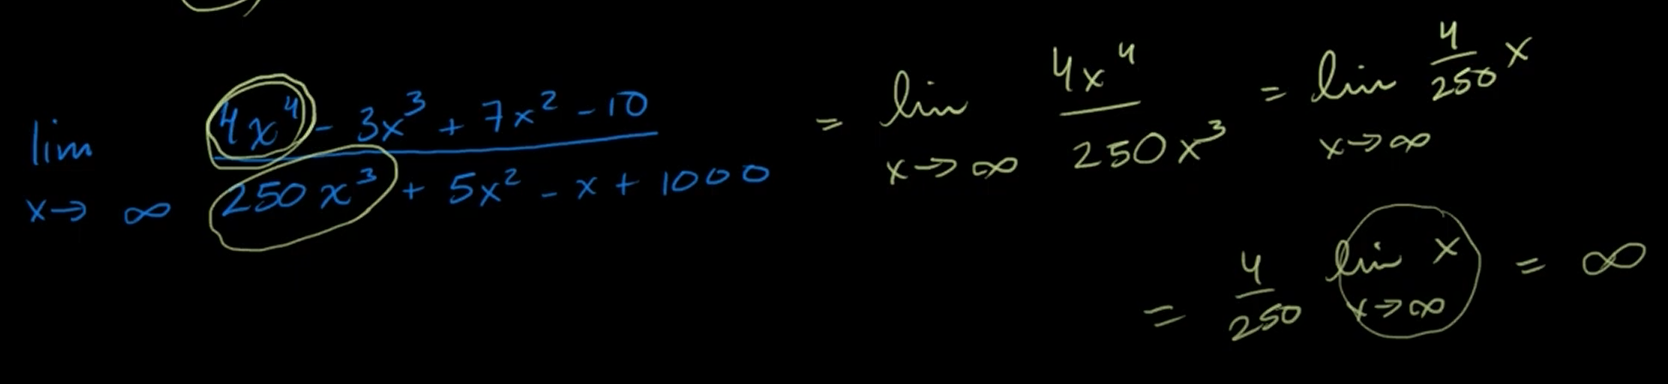 lim x→∞ (4x⁴ - 3x³ + 7x² - 10)/(250x³ + 5x² - x + 1000) = lim x→∞ 4x⁴/250x³ = lim x→∞ 4/250 x
= 4/250 lim x→∞ x = ∞